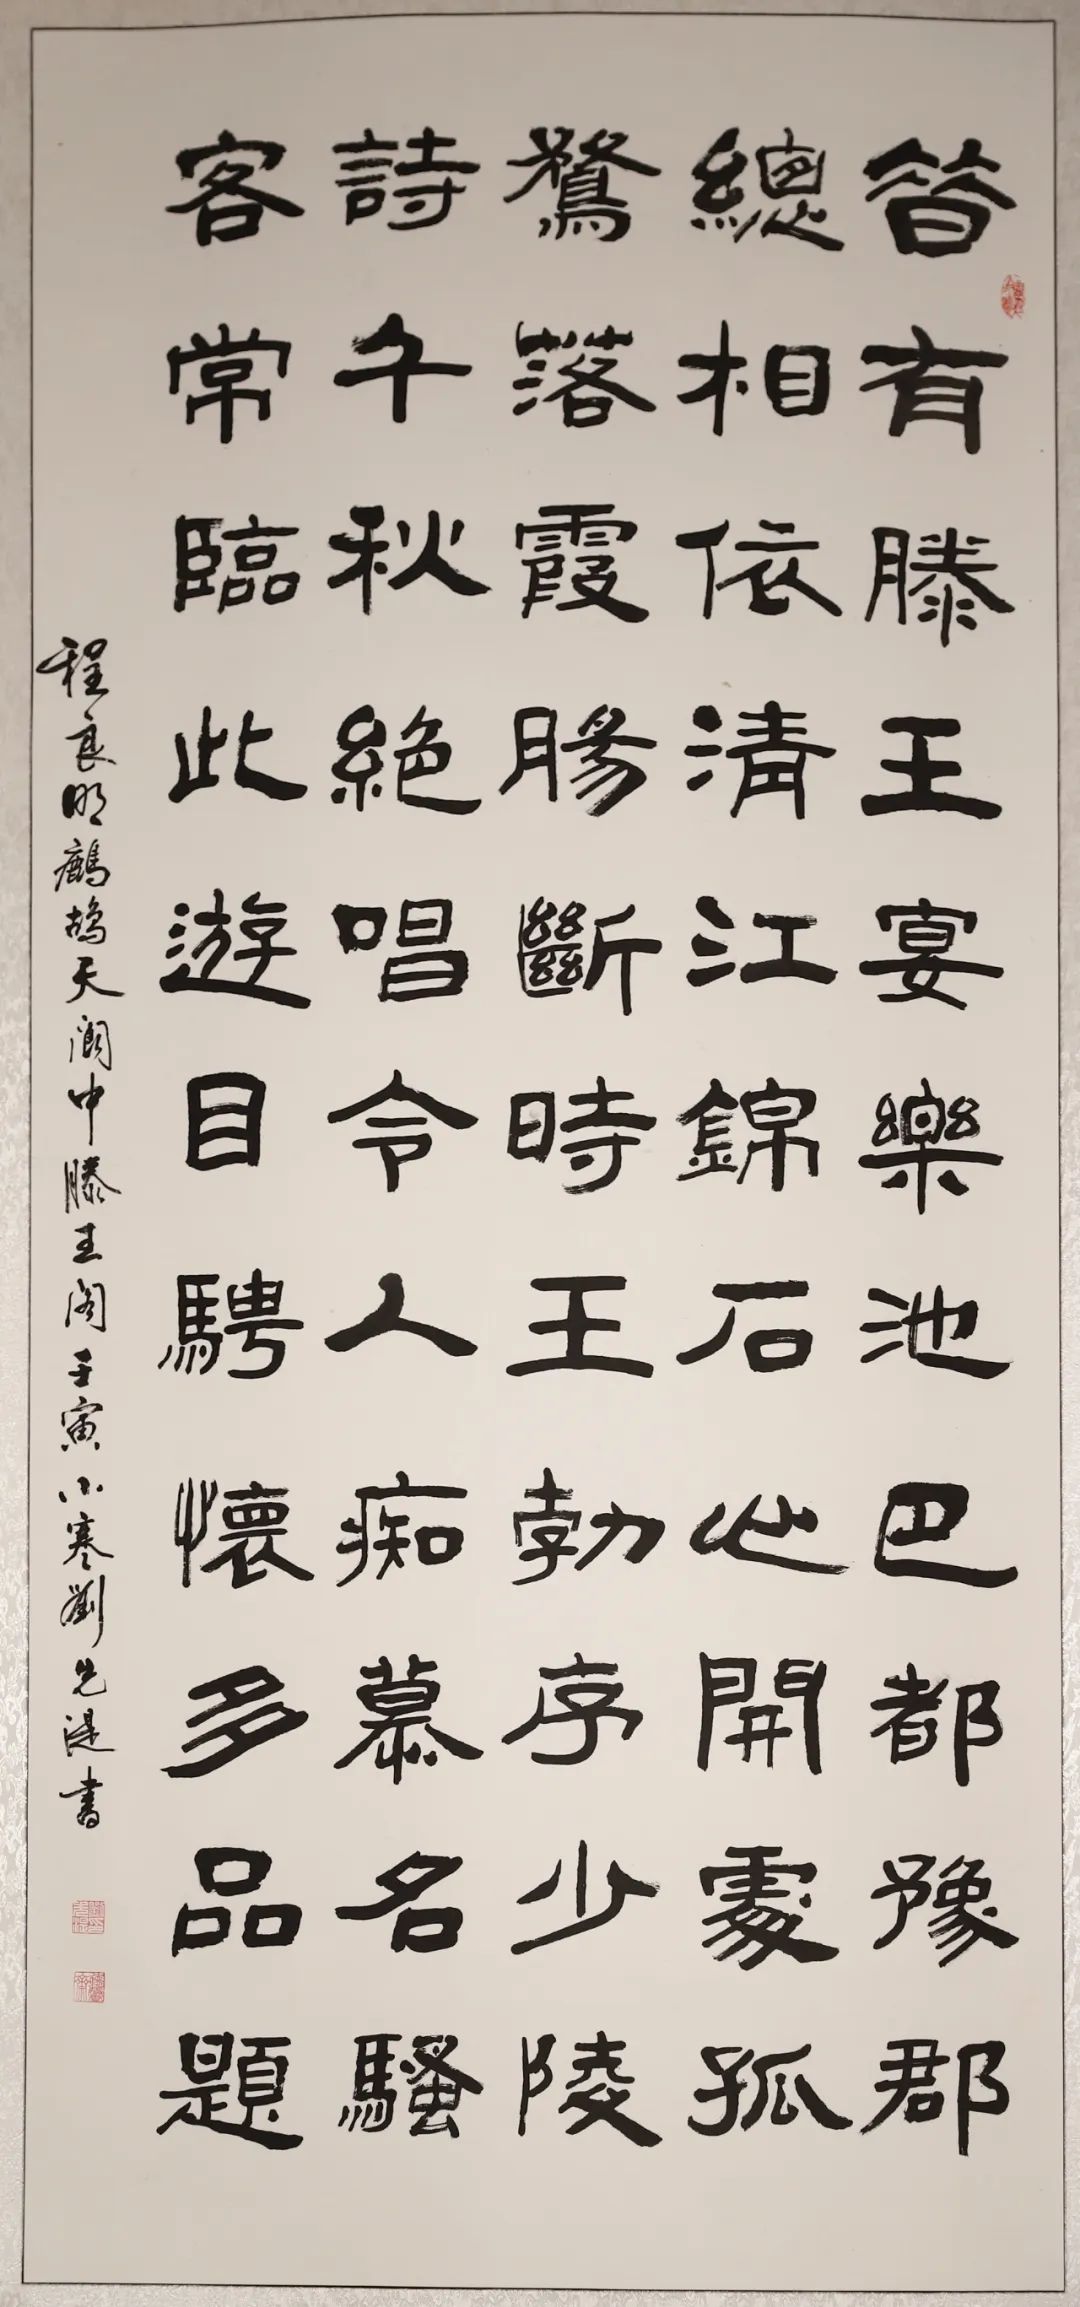 昔有滕王宴樂池巴都豫郡
總相依清江錦石心開處孤
鶩落霞腸斷時王勃序少陵
詩千秋絕唱令人痴慕名騷
客常臨此遊目騁懷多品題
程良明鷓鴣天閬中滕王阁壬寅小寒劉先書